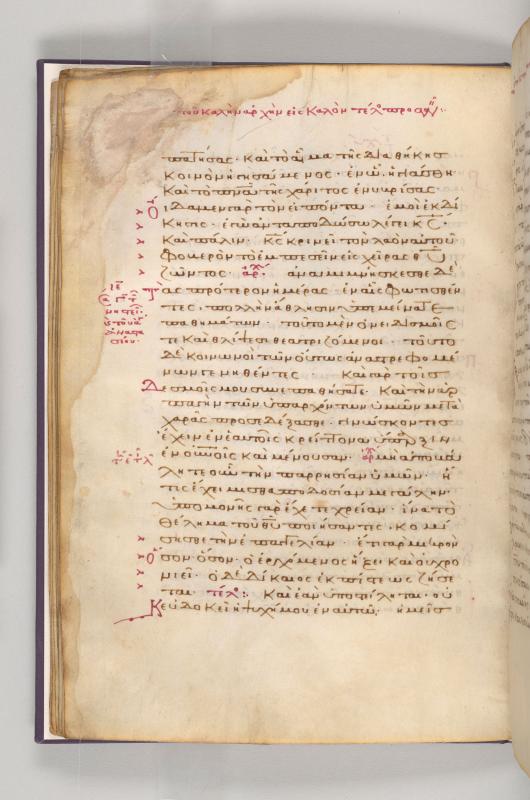 τοῦ καλὴν ἀρχὴν εἰς καλὸν τέλος
πατήσας· καὶ τὸ αἷμα τῆς διαθήκης
κοινὸν ἡγησάμενος· ἐν ὧ ἡγιάσθη·
καὶ τὸ πνα τῆς χάριτος ἐνυβρίσας·
Οἴδαμεν γὰρ τὸν εἰπόντα· ἐμοὶ ἐκδί
κησις· ἐγὼ ἀνταποδώσω λέγει κς·
καὶ πάλιν· κς κρινεῖ τὸν λαὸν αὐτοῦ
φοβερὸν τὸ ἐμπεσεῖν εἰς χεῖρας θυ
ζῶντος· ἀρχ· ἀναμιμνήσκεσθε δὲ
τὰς πρότερον ἡμέρας· ἐν αἷς φωτισθέν
τες· πολλὴν ἄθλησιν ὑπεμείνατε
παθημάτων· τοῦτο μὲν ὀνειδισμοῖς
τε καὶ θλίψεσι θεατριζόμενοι· τοῦτο
δὲ κοινωνοὶ τῶν οὕτως ἀναστρεφομέ
νων γενηθέντες· καὶ γὰρ τοῖς
Δεσμοῖς μου συνεπαθήσατε· καὶ τὴν ἁρ
παγὴν τῶν ὑπαρχόντων ὑμῶν μετὰ
χαρᾶς προσεδέξασθε· γινώσκοντες
ἔχειν ἐν ἑαυτοῖς κρείττονα ὕπαρξιν
ἐν οὐνοῖς καὶ μένουσαν· ἀρχ μὴ ἀποβά
λητε οὖν τὴν παρρησίαν ὑμῶν· ἥ
τις ἔχει μισθαποδοσίαν μεγάλην·
ὑπομονῆς γὰρ ἔχετε χρείαν· ἵνα τὸ
θέλημα τοῦ θυ ποιήσαντες· κομί
σησθε τὴν ἐπαγγελίαν· ἔτι γὰρ μικρὸν
Ὅσον ὅσον· ὁ ἐρχόμενος ἥξει καὶ οὐ χρο
νιεῖ· ὁ δὲ δίκαιος ἐκ πίστεως ζήσε
ται· τέλος: καὶ ἐὰν ὑποστείληται· οὐ
Κ εὐδοκεῖ ἡ ψυχή μου ἐν αὐτῷ· ἡμεῖς